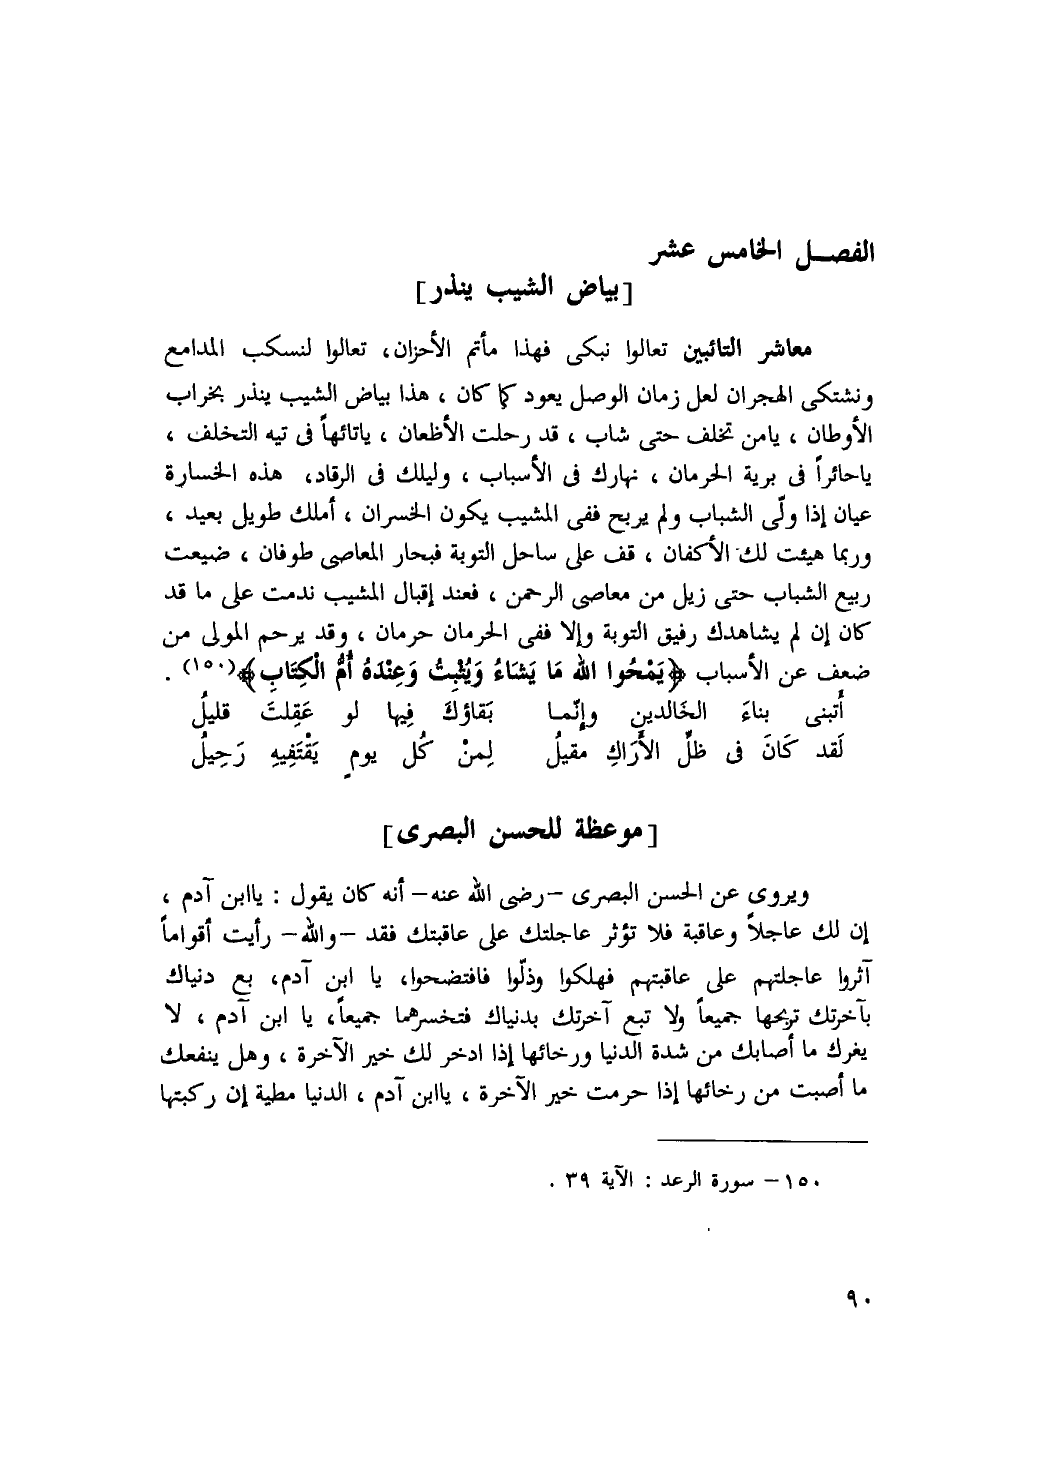 الفصـل الخامس عشر
[بياض الشيب ينذر]
معاشر التائبين تعالوا نبكى فهذا مأتم الأحزان، تعالوا لنسكب المدامع
ونشتكى الهجران لعل زمان الوصل يعود كما كان ، هذا بياض الشيب ينذر بخراب
الأوطان ، يامن تخلف حتى شاب ، قد رحلت الأظعان ، ياتائهاً فى تيه التخلف ،
ياحائراً فى برية الحرمان ، نهارك فى الأسباب ، وليلك فى الرقاد، هذه الخسارة
عيان إذا ولّى الشباب ولم يربح ففى المشيب يكون الخسران ، أملك طويل بعيد ،
وربما هيئت لك الأكفان ، قف على ساحل التوبة فبحار المعاصى طوفان ، ضيعت
ربيع الشباب حتى زيل من معاصى الرحمن ، فعند إقبال المشيب ندمت على ما قد
كان إن لم يشاهدك رفيق التوبة وإلا ففى الحرمان حرمان ، وقد يرحم المولى من
ضعف عن الأسباب ﴿يَمْحُوا الله مَا يَشَاءُ وَيُثْبِتُ وَعِنْدَهُ أُمُّ الْكِتَابِ﴾(١٥٠) .
أَتبنى بناءَ الخَالدينِ وإِنّمـا بَقاؤكَ فِيها لو عَقِلتَ قليلُ
لَقد كَانَ فى ظلِّ الأَرَاكِ مقيلُ لِمنْ كُل يومٍ يَقْتَفِيهِ رَحِيلُ
[موعظة للحسن البصرى]
ويروى عن الحسن البصرى –رضى الله عنه– أنه كان يقول : ياابن آدم ،
إن لك عاجلاً وعاقبة فلا تؤثر عاجلتك على عاقبتك فقد –والله– رأيت أقواماً
آثروا عاجلتهم على عاقبتهم فهلكوا وذلّوا فافتضحوا، يا ابن آدم، بع دنياك
بآخرتك تربحها جميعاً ولا تبع آخرتك بدنياك فتخسرهما جميعاً، يا ابن آدم ، لا
يغرك ما أصابك من شدة الدنيا ورخائها إذا ادخر لك خير الآخرة ، وهل ينفعك
ما أصبت من رخائها إذا حرمت خير الآخرة ، ياابن آدم ، الدنيا مطية إن ركبتها
١٥٠– سورة الرعد : الآية ٣٩ .
٩٠